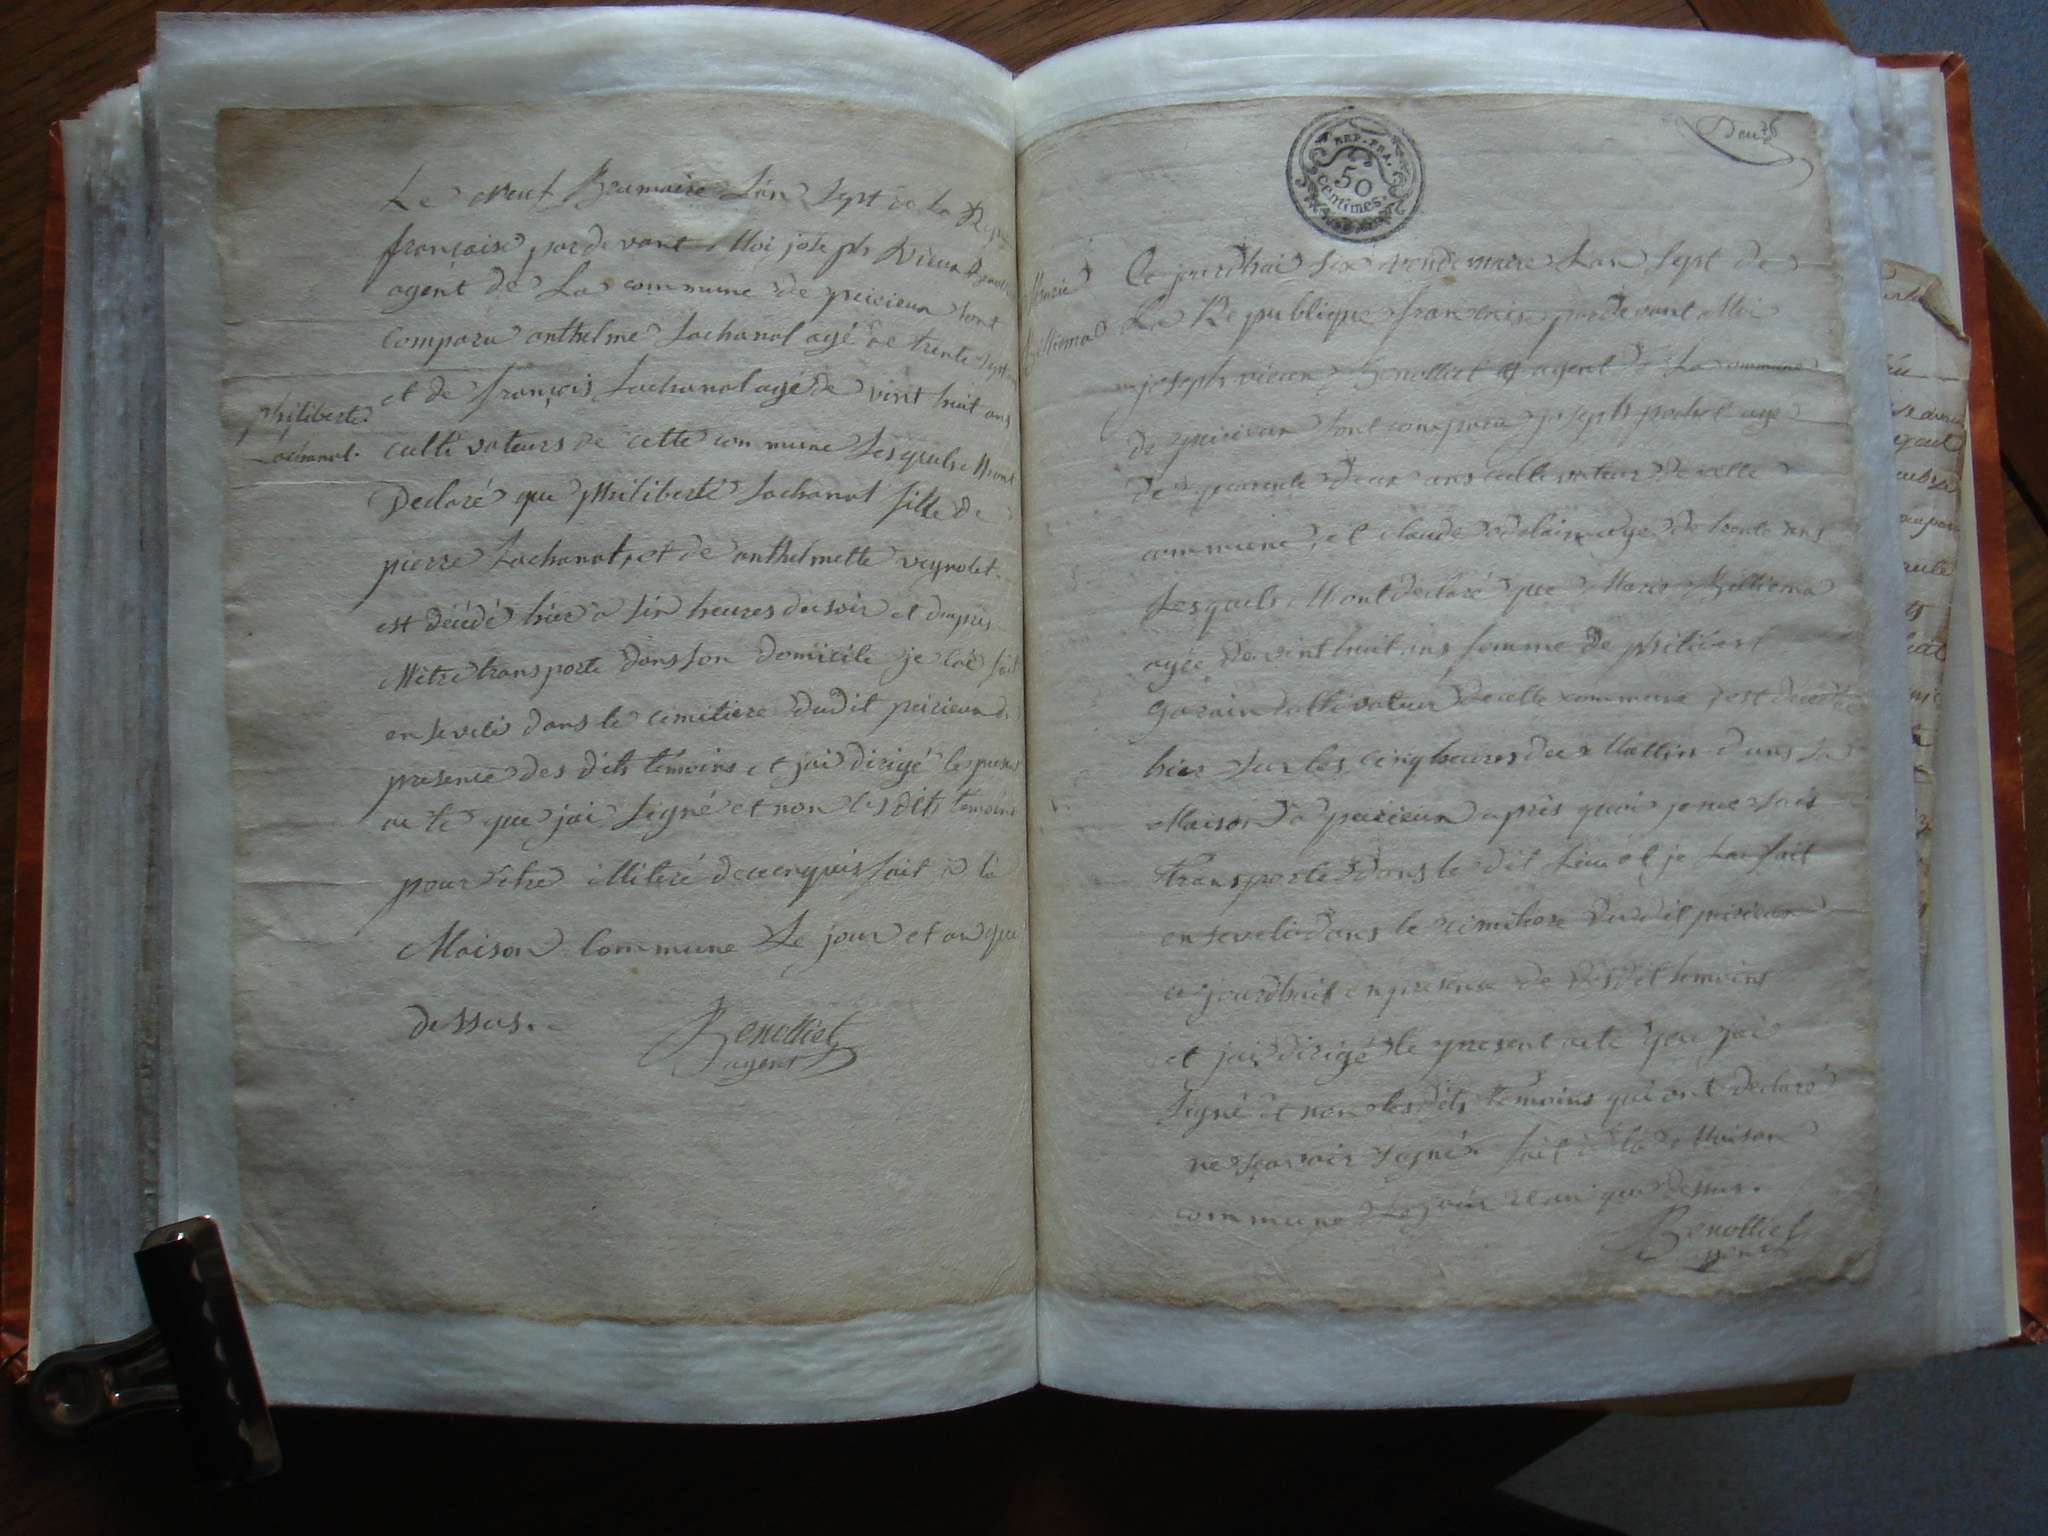 Le neuf Brumaire L'an Sept de La Repu
française pardevant Moi joseph Vieux Benolliet
agent de La commune de peirieux sont
comparu anthelme Lachanal agé de trente sept
et de françois Lachanal agé de vint huit ans
philiberte
Lachanal.
cultivateurs de cette commune Lesquels M'ont
Declaré que philiberte Lachanal fille de
pierre Lachanal, et de anthelmette veyrolet
est décédé hier a six heures du soir et d'apres
M'être transporté dans son domicile je l'ai fait
enseveli dans le cimitiere dudit peirieux en
presence des dits temoins et j'ai dirigé le present
acte que j'ai signé et non les dits temoins
pour être illiteré de ce enquis fait à la
Maison Commune Le jour et an que
dessus.
Benolliet
agent
REP. FRA.
50
centimes.
Deux
Marie
Billiema
Ce jourdhui six vendemiaire L'an Sept de
La Republique francaise pardevant Moi
joseph vieux Benolliet agent de La commune
de peirieux sont comparu joseph pochet agé
de quarente deux ans cultivateur de cette
commune, et claude agé de trente ans
Lesquels M'ont declaré que Marie Billiema
agée de vint huit ans femme de philibert
Gorain cultivateur de cette commune, est decedée
hier sur les cinq heures du Mattin dans sa
Maison a peirieux apres quoi je me suis
transporté dans le dit Lieu et je L'ai fait
enseveli dans le cimitiere dudit peirieux
ce jourdhuit en presence de dit temoins
et j'ai dirigé le present acte que j'ai
signé et non les dits temoins qui ont declaré
ne sçavoir signé fait à la Maison
commune Le jour et an que dessus.
Benolliet
agent